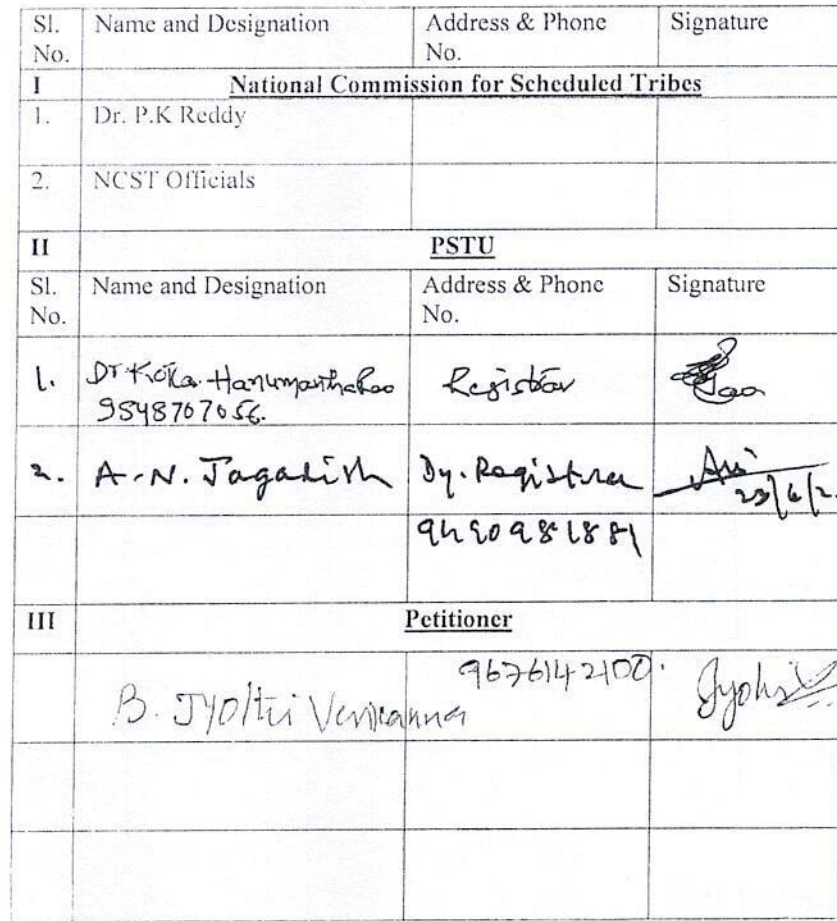 Sl. No. Name and Designation Address & Phone No. Signature
I National Commission for Scheduled Tribes
1. Dr. P.K Reddy
2. NCST Officials
II PSTU
Sl. No. Name and Designation Address & Phone No. Signature
1. Dr. Koka. HanumanthaRao Registrar Rao
9848707056.
2. A.N. Jagadish Dy. Registrar
23/6/2
III Petitioner
9676142100.
B. Jyothi Venkanna Jyothi